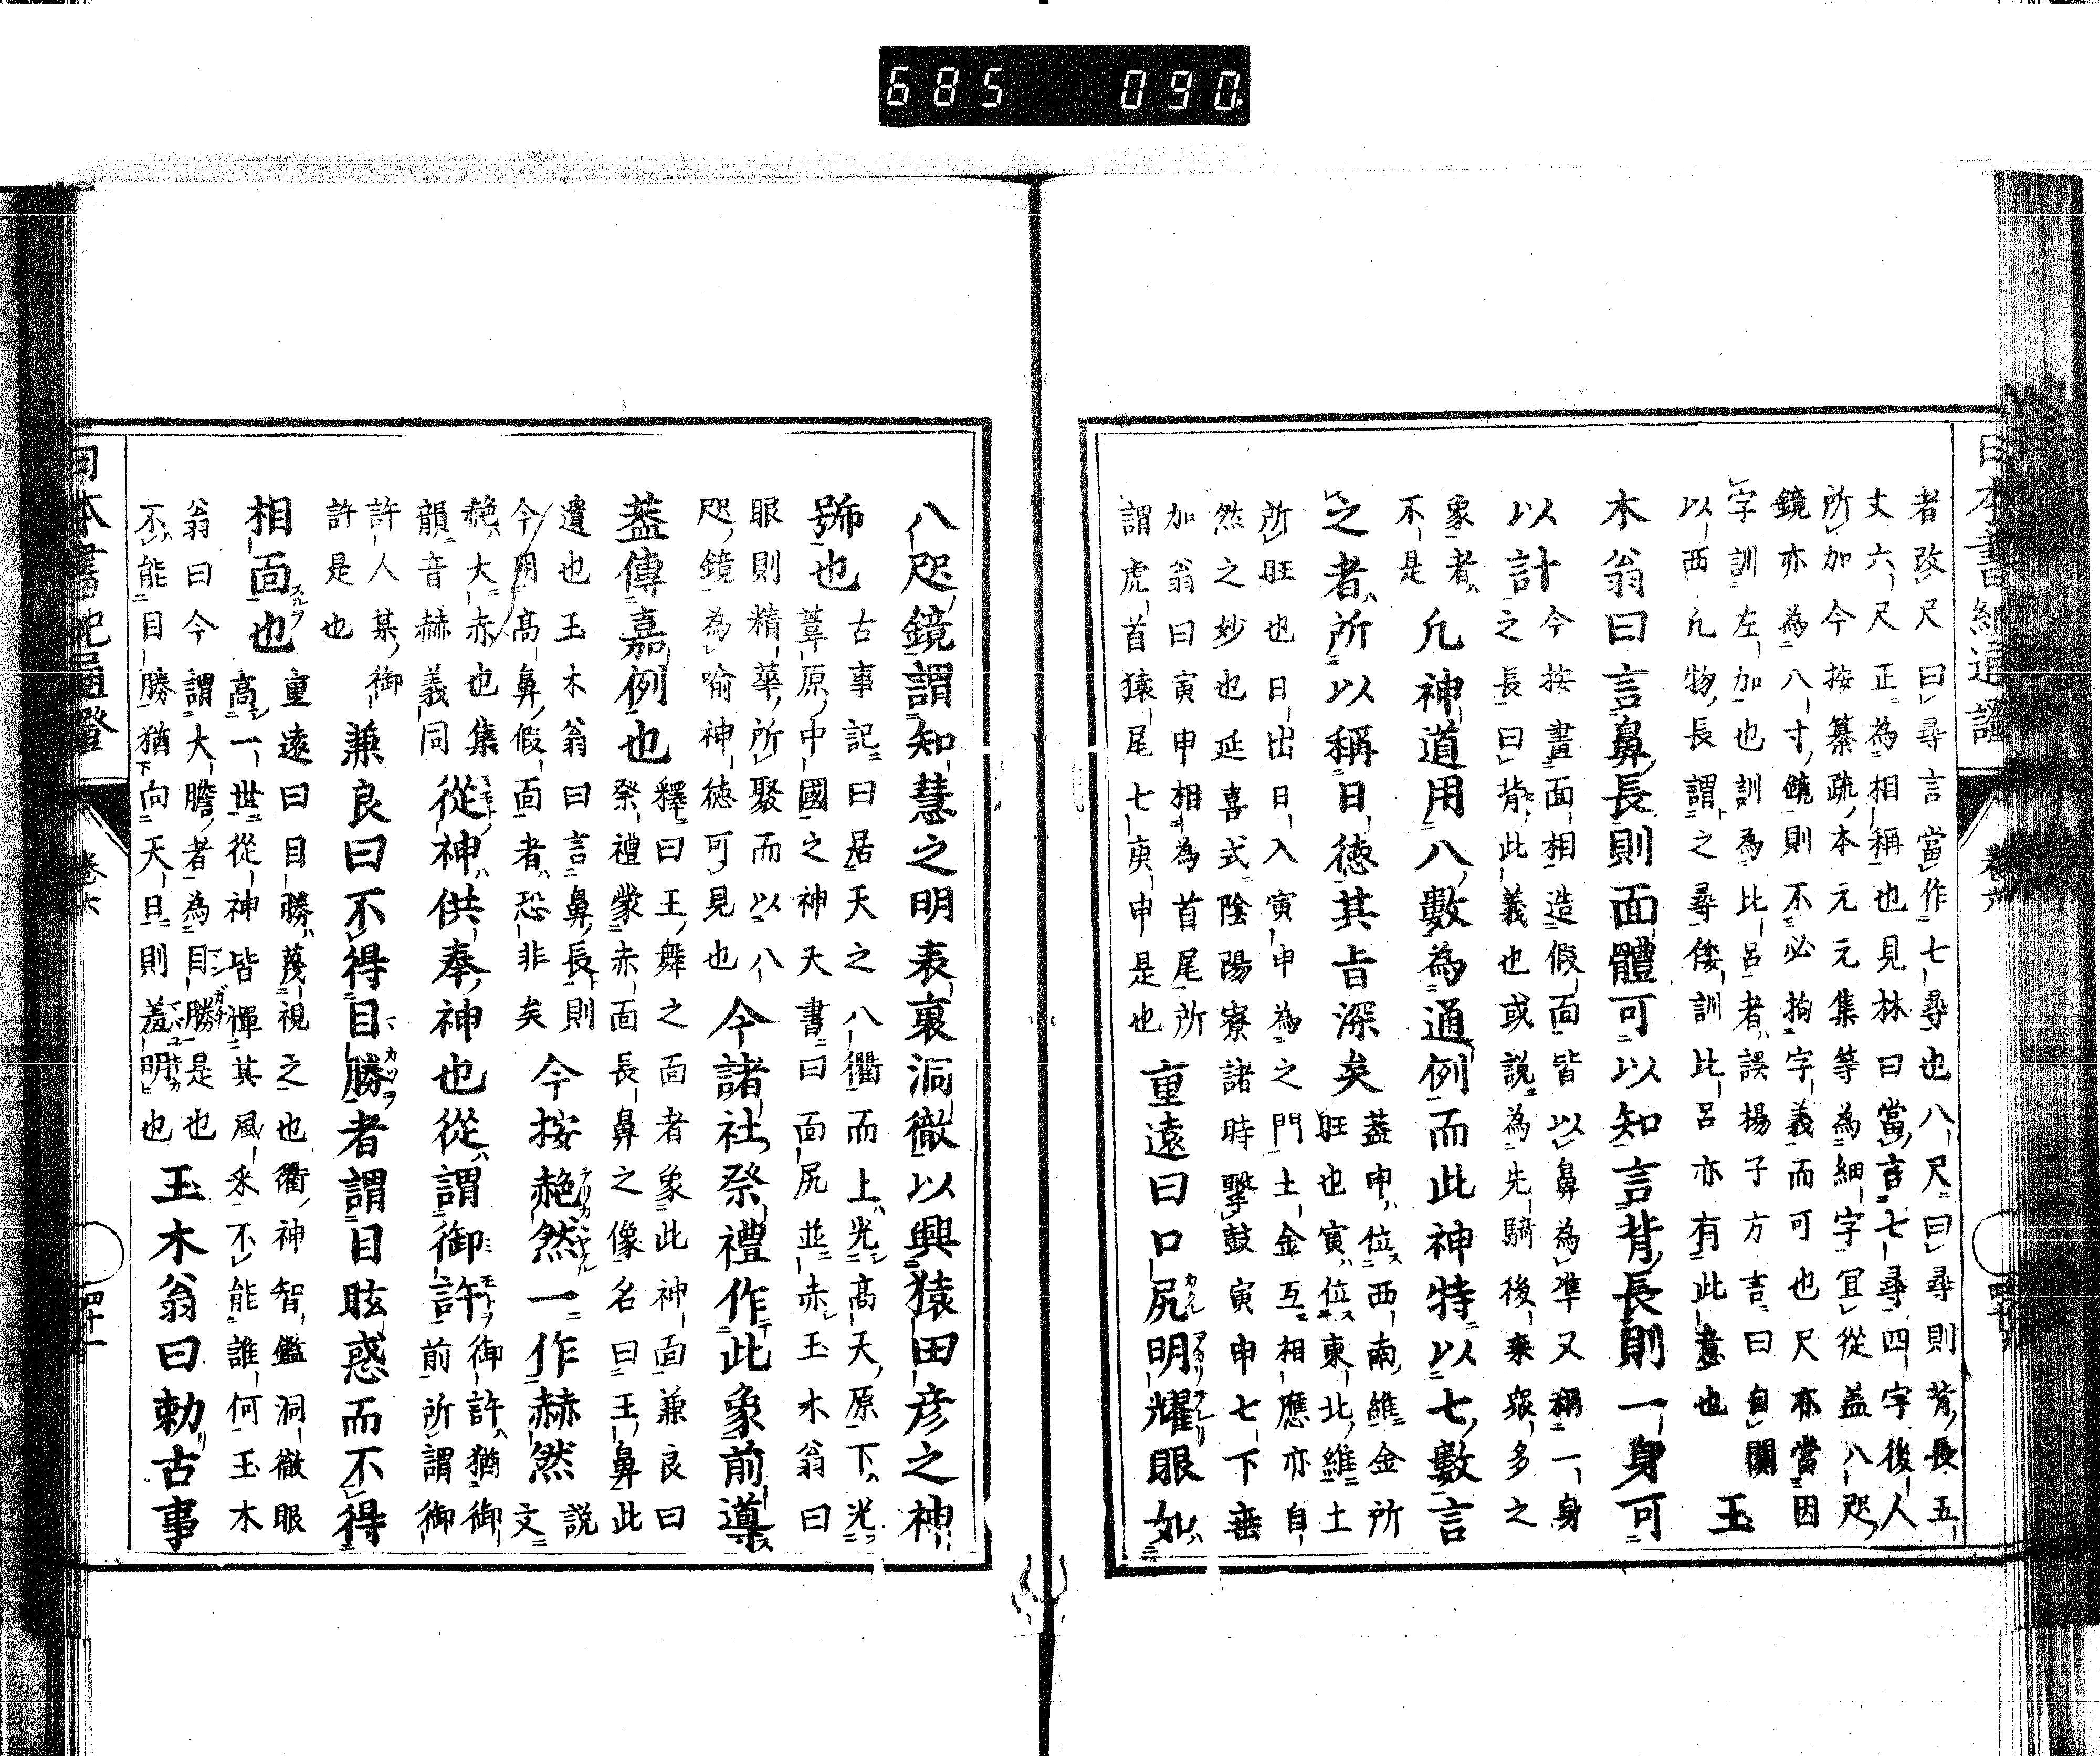 685 090
者改尺曰尋言當作七尋也八尺曰尋則背長五
丈六尺正為相稱也見林曰當言七尋四字後人
所加今按纂疏本元元集等為細字宜從蓋八咫
鏡亦為八寸鏡則不必拘字義而可也尺亦當因
字訓左加也訓為比呂者誤楊子方言曰自關
以西凡物長謂之尋倭訓比呂亦有此意也
玉
木翁曰言鼻長則面體可以知言背長則一身可
以計
今按畫面相造假面皆以鼻為準又稱一身
之長曰背此義也或説為先騎後乗衆多之
象者
不是
凡神道用八數為通例而此神特以七數言
之者所以稱日徳其旨深矣
蓋申位西南維金所
旺也寅位東北維土
所旺也日出日入寅申為之門土金互相應亦自
然之妙也延喜式陰陽寮諸時撃鼓寅申七下垂
加翁曰寅申相為首尾所
謂虎首猿尾七庚申是也
重遠曰口尻明耀眼如
八咫鏡謂知慧之明表裏洞徹以興猿田彦之神
號也
古事記曰居天之八衢而上光高天原下光
葦原中國之神天書曰面尻並赤玉木翁曰
眼則精華所聚而以八
咫鏡為喻神徳可見也
今諸社祭禮作此象前導
蓋傳嘉例也
釋曰王舞之面者象此神面兼良曰
祭禮蒙赤面長鼻之像名曰王鼻此
遺也玉木翁曰言鼻長則
今用高鼻假面者恐非矣
今按赩然一作赫然
説
文
赩大赤也集
韻音赫義同
從神供奉神也從謂御許
御許猶御
前所謂御
許人某御
許是也
兼良曰不得目勝者謂目眩惑而不得
相面也
重遠曰目勝蔑視之也衢神智鑑洞徹眼
高一世從神皆憚其風采不能誰何玉木
翁曰今謂大膽者為目勝是也
不能目勝猶向天日則羞明也
玉木翁曰勅古事
日本書紀通證
卷六
四十一